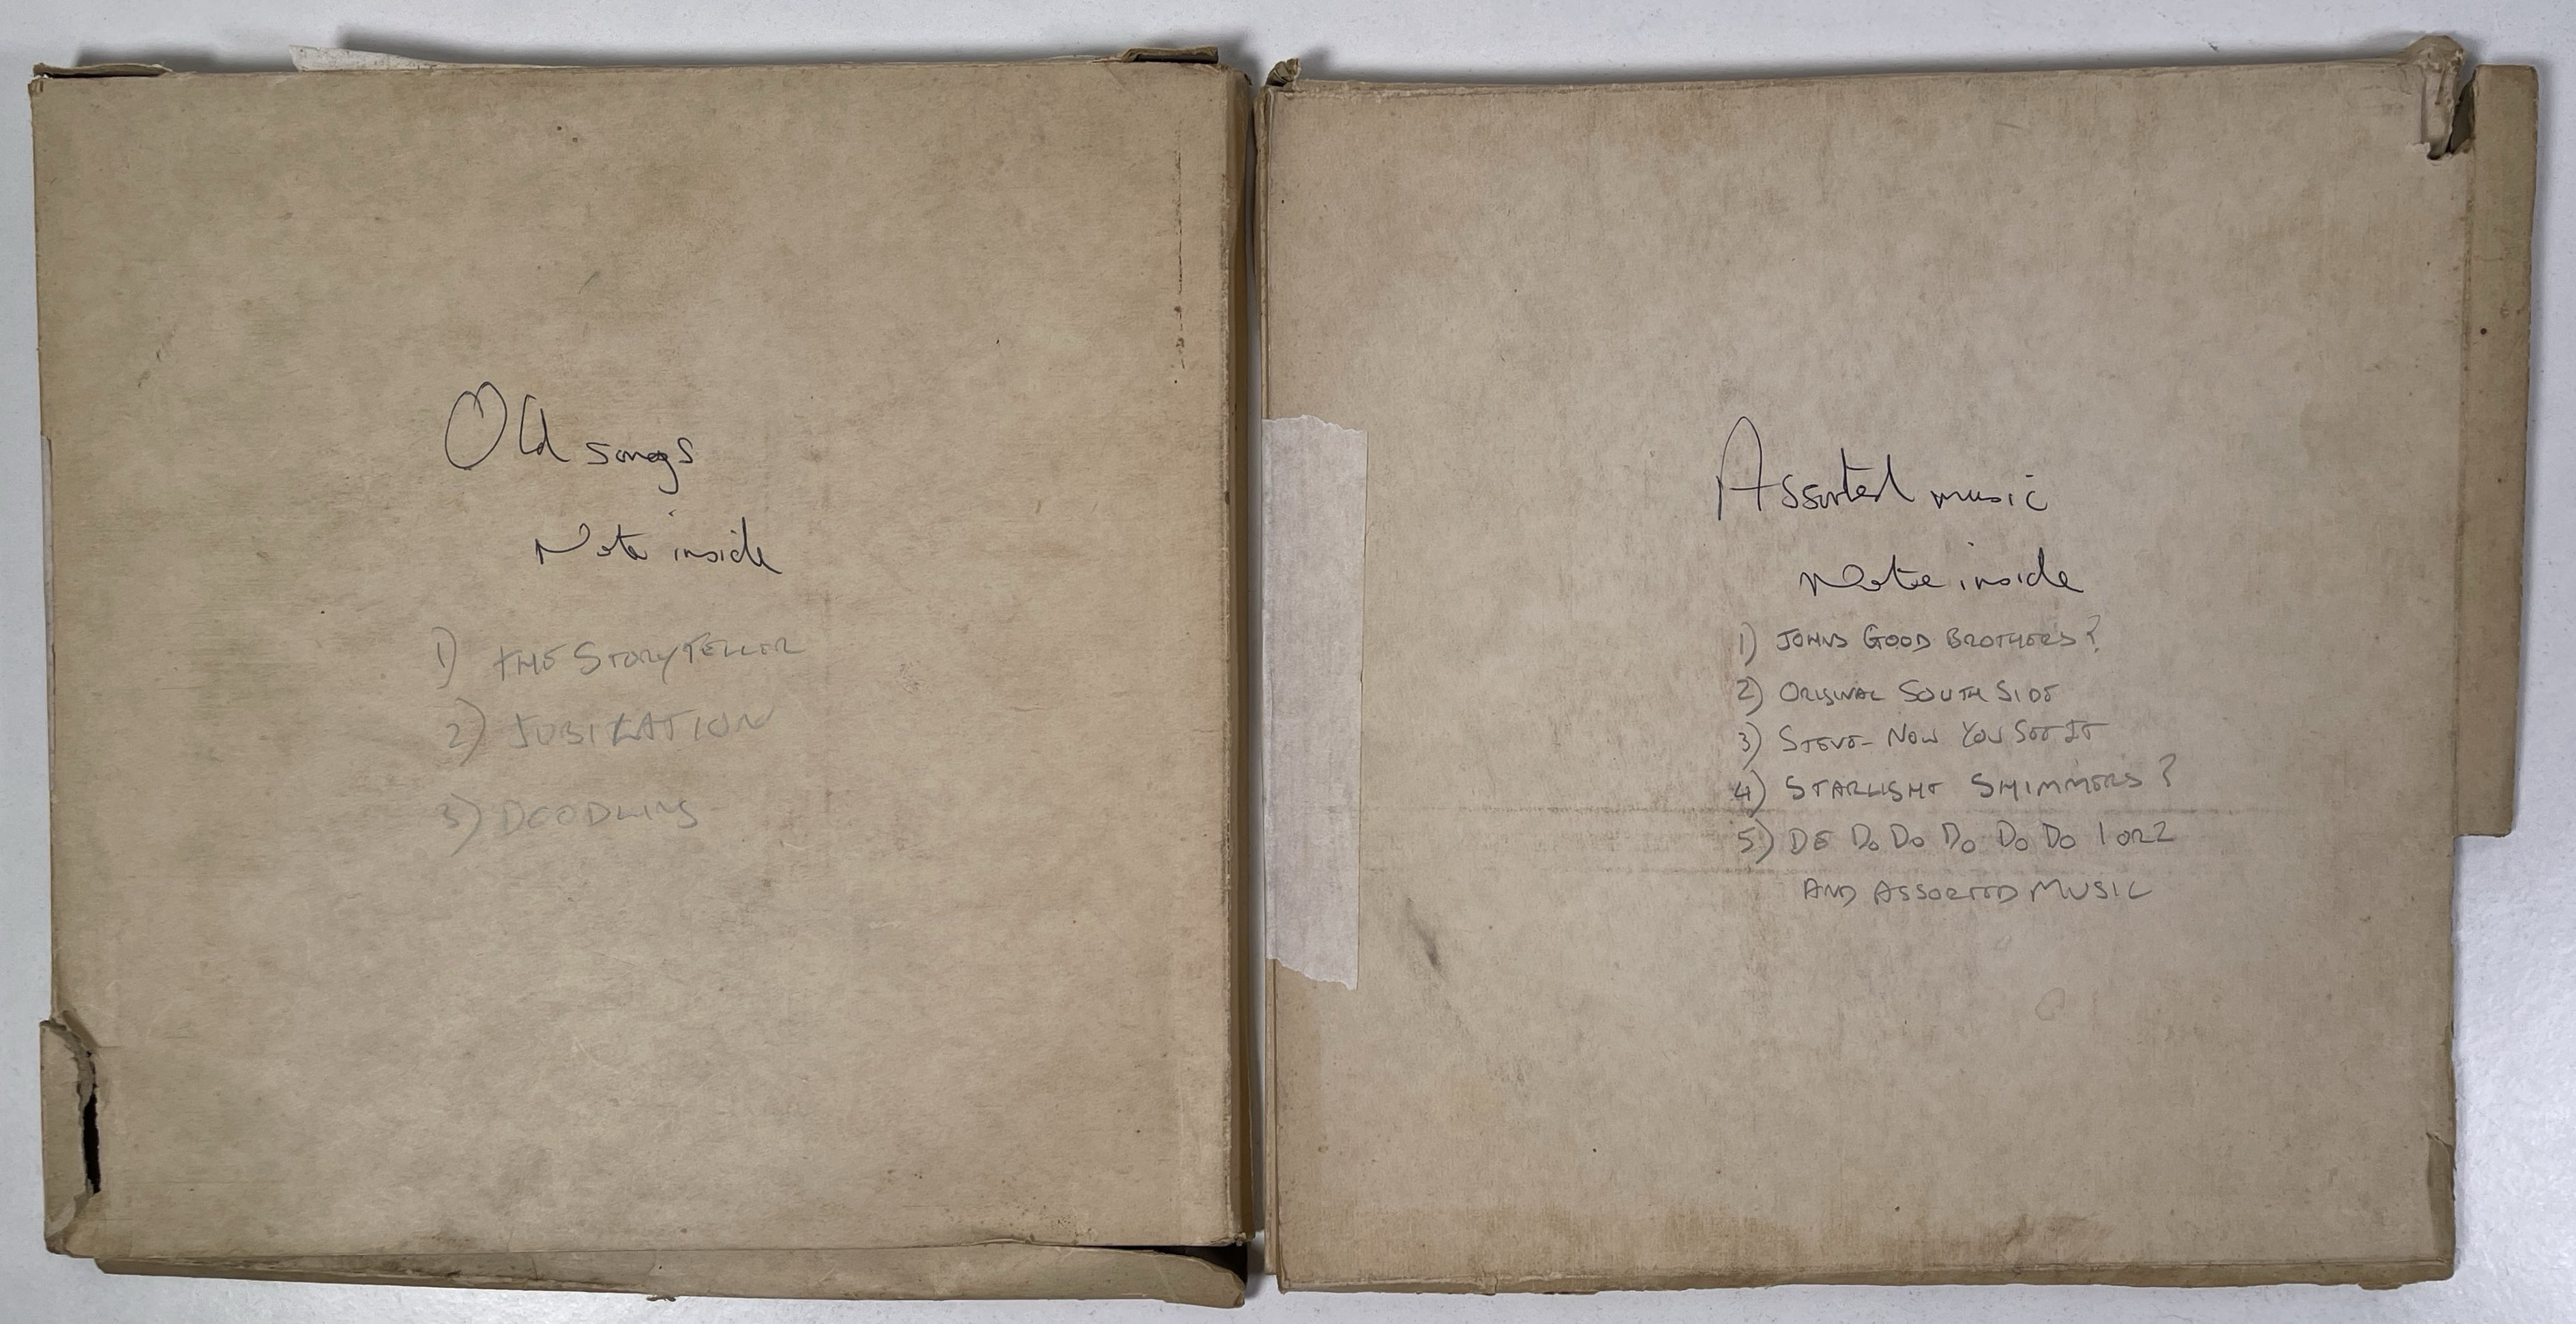 Old songs
Note inside
1) THE STORYTELLER
2) JUBILATION
3) DOODLING
Assorted music
Note inside
1) JOHNS GOOD BROTHERS?
2) ORIGINAL SOUTH SIDE
3) STEVE - NOW YOU SEE IT
4) STARLIGHT SHIMMERS?
5) DE DO DO DO DO DO 1 OR 2
AND ASSORTED MUSIC